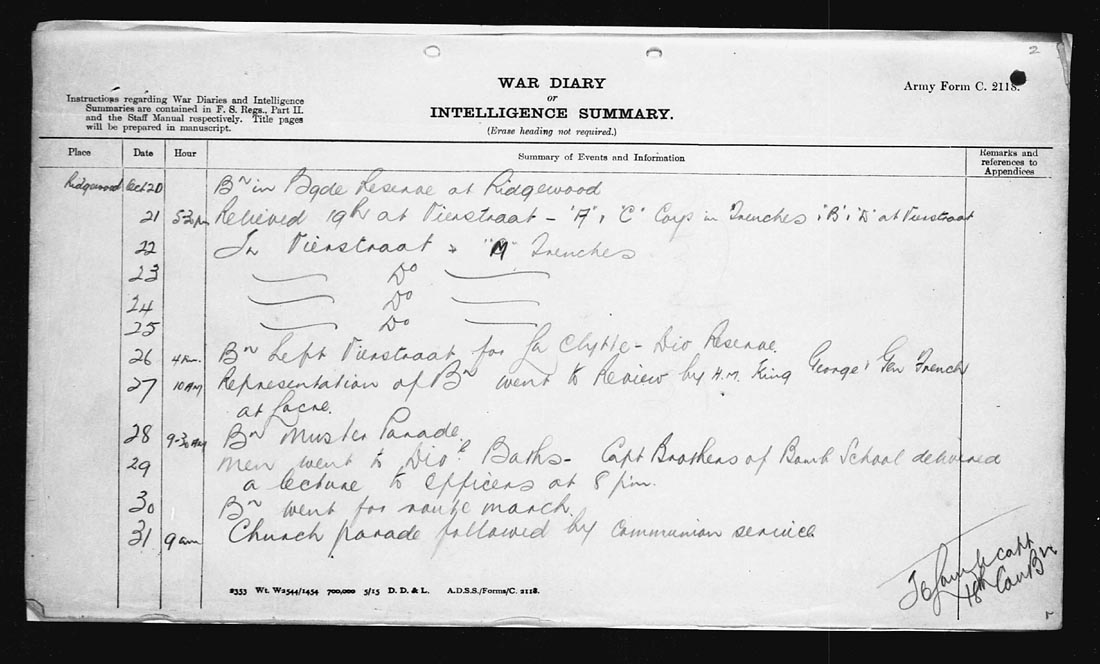 2
WAR DIARY
or
INTELLIGENCE SUMMARY.
(Erase heading not required.)
Army Form C. 2118.
Instructions regarding War Diaries and Intelligence
Summaries are contained in F. S. Regs., Part II.
and the Staff Manual respectively. Title pages
will be prepared in manuscript.
Place Date Hour Summary of Events and Information Remarks and references to Appendices
Ridgewood Oct 20 Bn in Bgde Reserve at Ridgewood
21 5-30pm Relieved 19th at Vierstraat - "A" & "C" Coys in Trenches & "B" & "D" at Vierstraat
22 In Vierstraat & "M" Trenches
23 Do
24 Do
25 Do
26 4 Pm. Bn left Vierstraat for La Clytte - Div Reserve.
27 10 AM Representation of Bn went to Review by H.M. King George & Gen French
at Locre.
28 9-30 AM Bn Muster Parade.
29 Men went to Divl Baths - Capt Brothers of Bomb School delivered
a lecture to Officers at 8 pm.
30 Bn went for route march.
31 9 am Church parade followed by Communion service
Capt
18th Can Bn
2353 Wt. W2544/1454 700,000 5/15 D. D. & L. A.D.S.S./Forms/C. 2118.